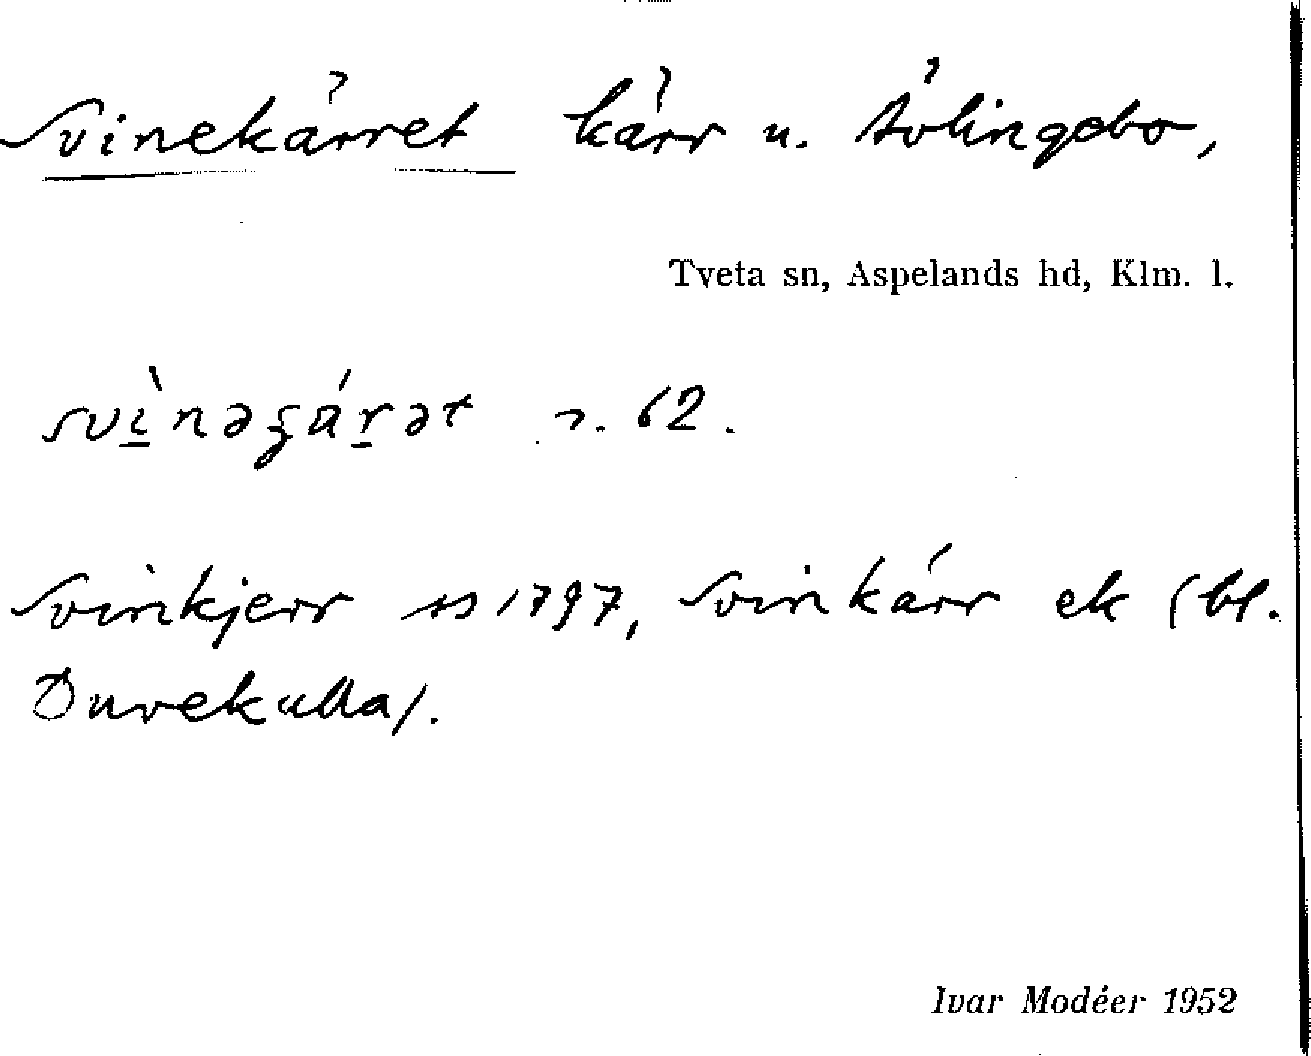 Svinekärret kärr u. Åvlingebo,
Tveta sn, Aspelands hd, Klm. l.
62.
Svinkjerr ss 1797, Svinkärr ek (bl.
Duvekulla).
Ivar Modéer 1952